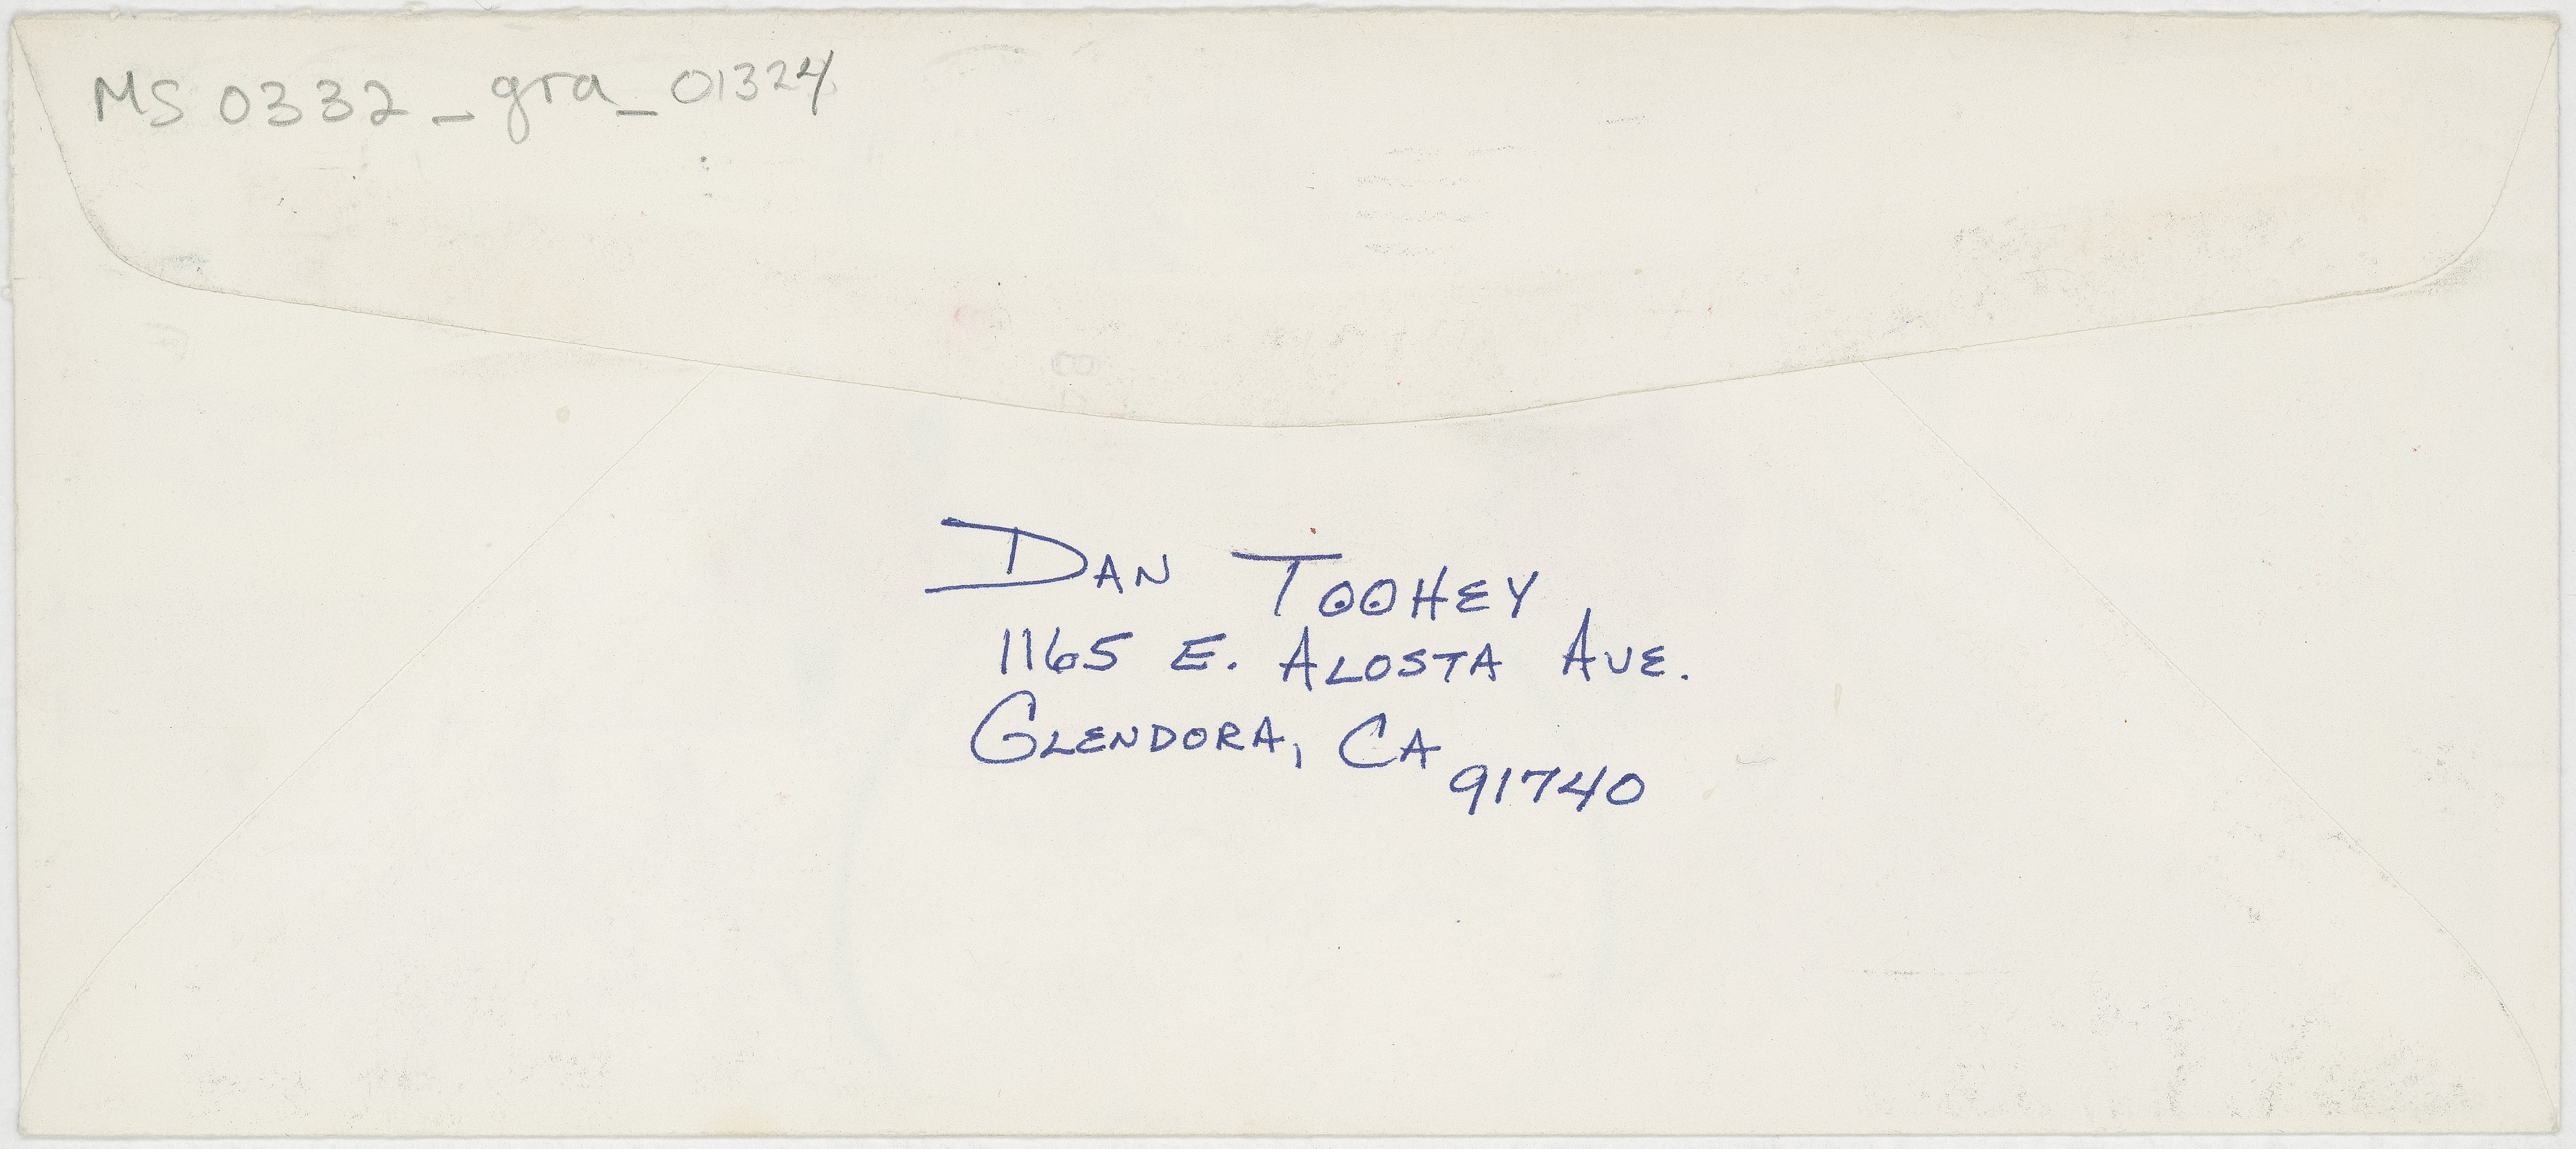 MS 0332_gra_01324
DAN TOOHEY
1165 E. ALOSTA AVE.
GLENDORA, CA
91740